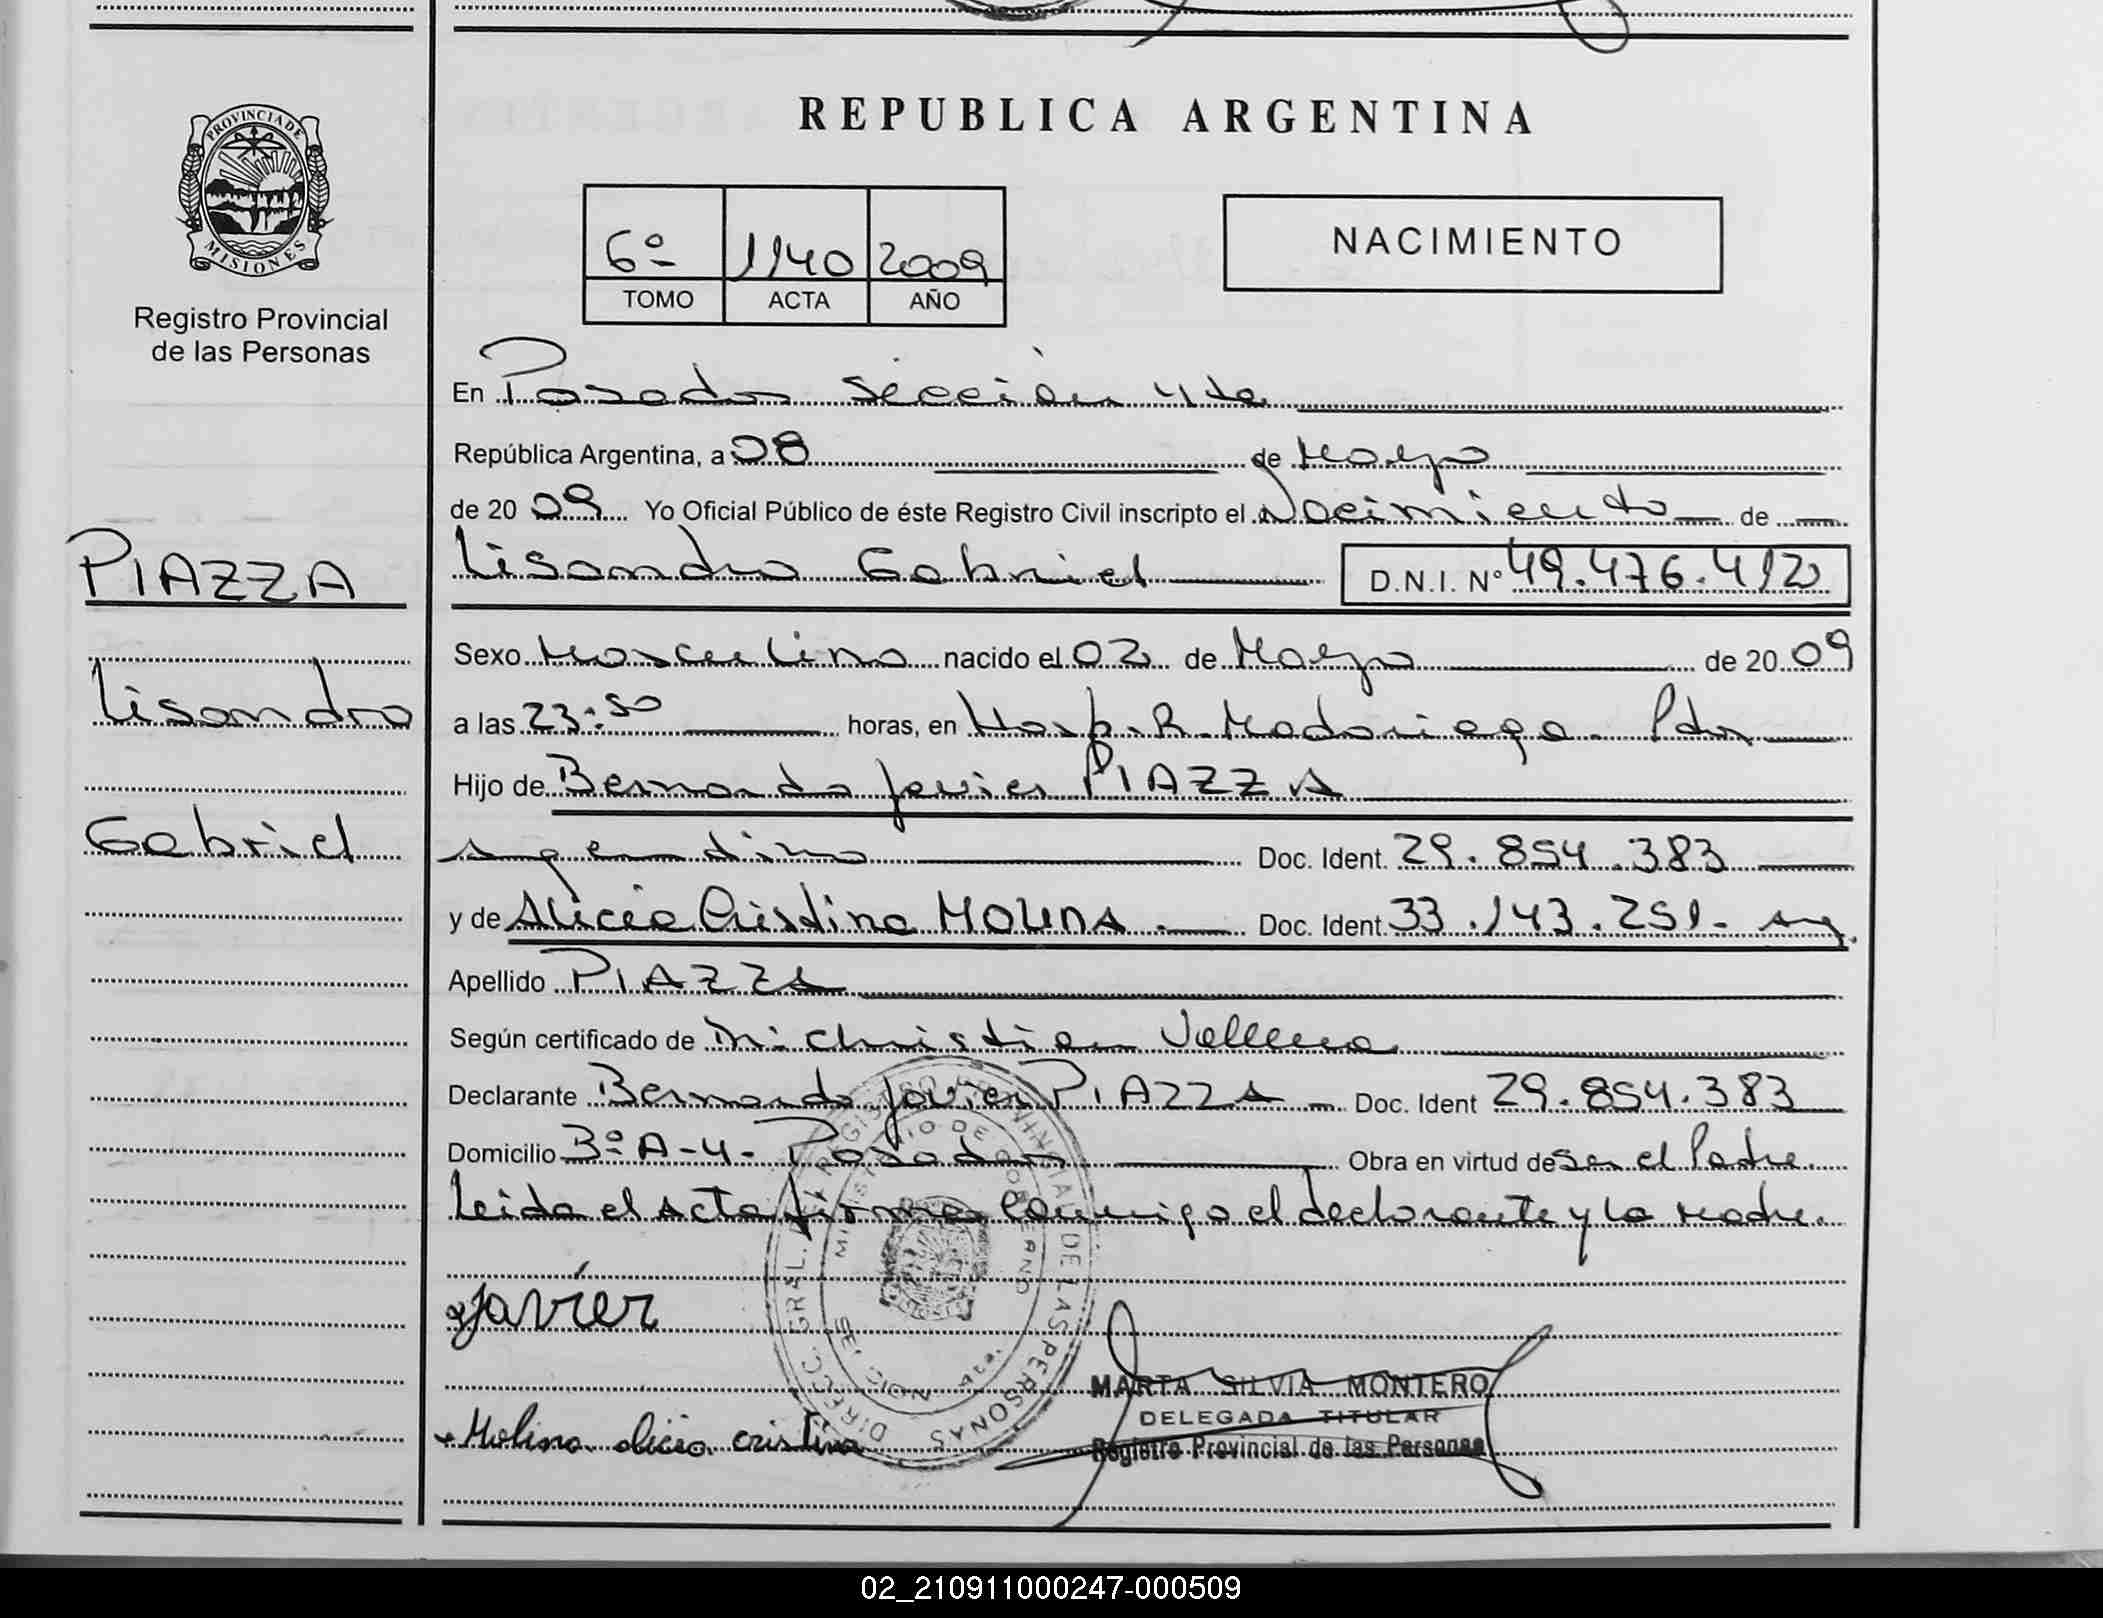 PROVINCIA DE
MISIONES
Registro Provincial
de las Personas
PIAZZA
Lisandro
Gabriel
REPUBLICA ARGENTINA
6º 1140 2009
TOMO ACTA AÑO
NACIMIENTO
En Posadas Sección 4ta
República Argentina, a 08 de Mayo
de 20 09 Yo Oficial Público de éste Registro Civil inscripto el Nacimiento de
Lisandro Gabriel D.N.I. Nº 49.476.412
Sexo Masculino nacido el 02 de Mayo de 20 09
a las 23:50 horas, en Hosp. R. Madariaga - Pdas
Hijo de Bernardo Javier PIAZZA
Argentino Doc. Ident. 29.854.383
y de Alicia Cristina MOLINA. Doc. Ident. 33.143.251- Arg.
Apellido PIAZZA
Según certificado de Christian
Declarante Bernardo Javier PIAZZA Doc. Ident 29.854.383
Domicilio 3º A-4- Posadas Obra en virtud de Ser el Padre.
Leida el Acta firman conmigo el declarante y la Madre.
Javier
MARTA SILVIA MONTERO
DELEGADA TITULAR
Molina alicia cristina
Registro Provincial de las Personas
DIRECC. GRAL. REGISTRO PROVINCIAL DE LAS PERSONAS
MINISTERIO DE GOBIERNO
02_210911000247-000509